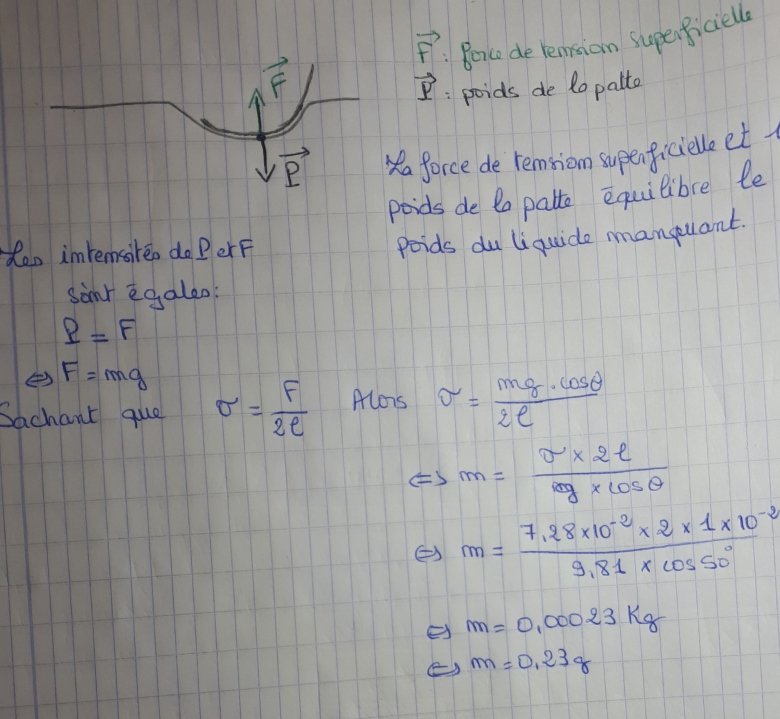 F : force de tension superficielle
P : poids de la patte
F
P
La force de tension superficielle et
poids de la patte équilibre le
poids du liquide manquant.
Les intensités de P et F
sont égales :
P = F
⇔ F = mg
Sachant que σ = F / 2ℓ Alors σ = mg . cosθ / 2ℓ
⇔ m = σ × 2ℓ / g × cosθ
⇔ m = 7,28 × 10⁻² × 2 × 1 × 10⁻² / 9,81 × cos 50°
⇔ m = 0,00023 Kg
⇔ m = 0,23 g